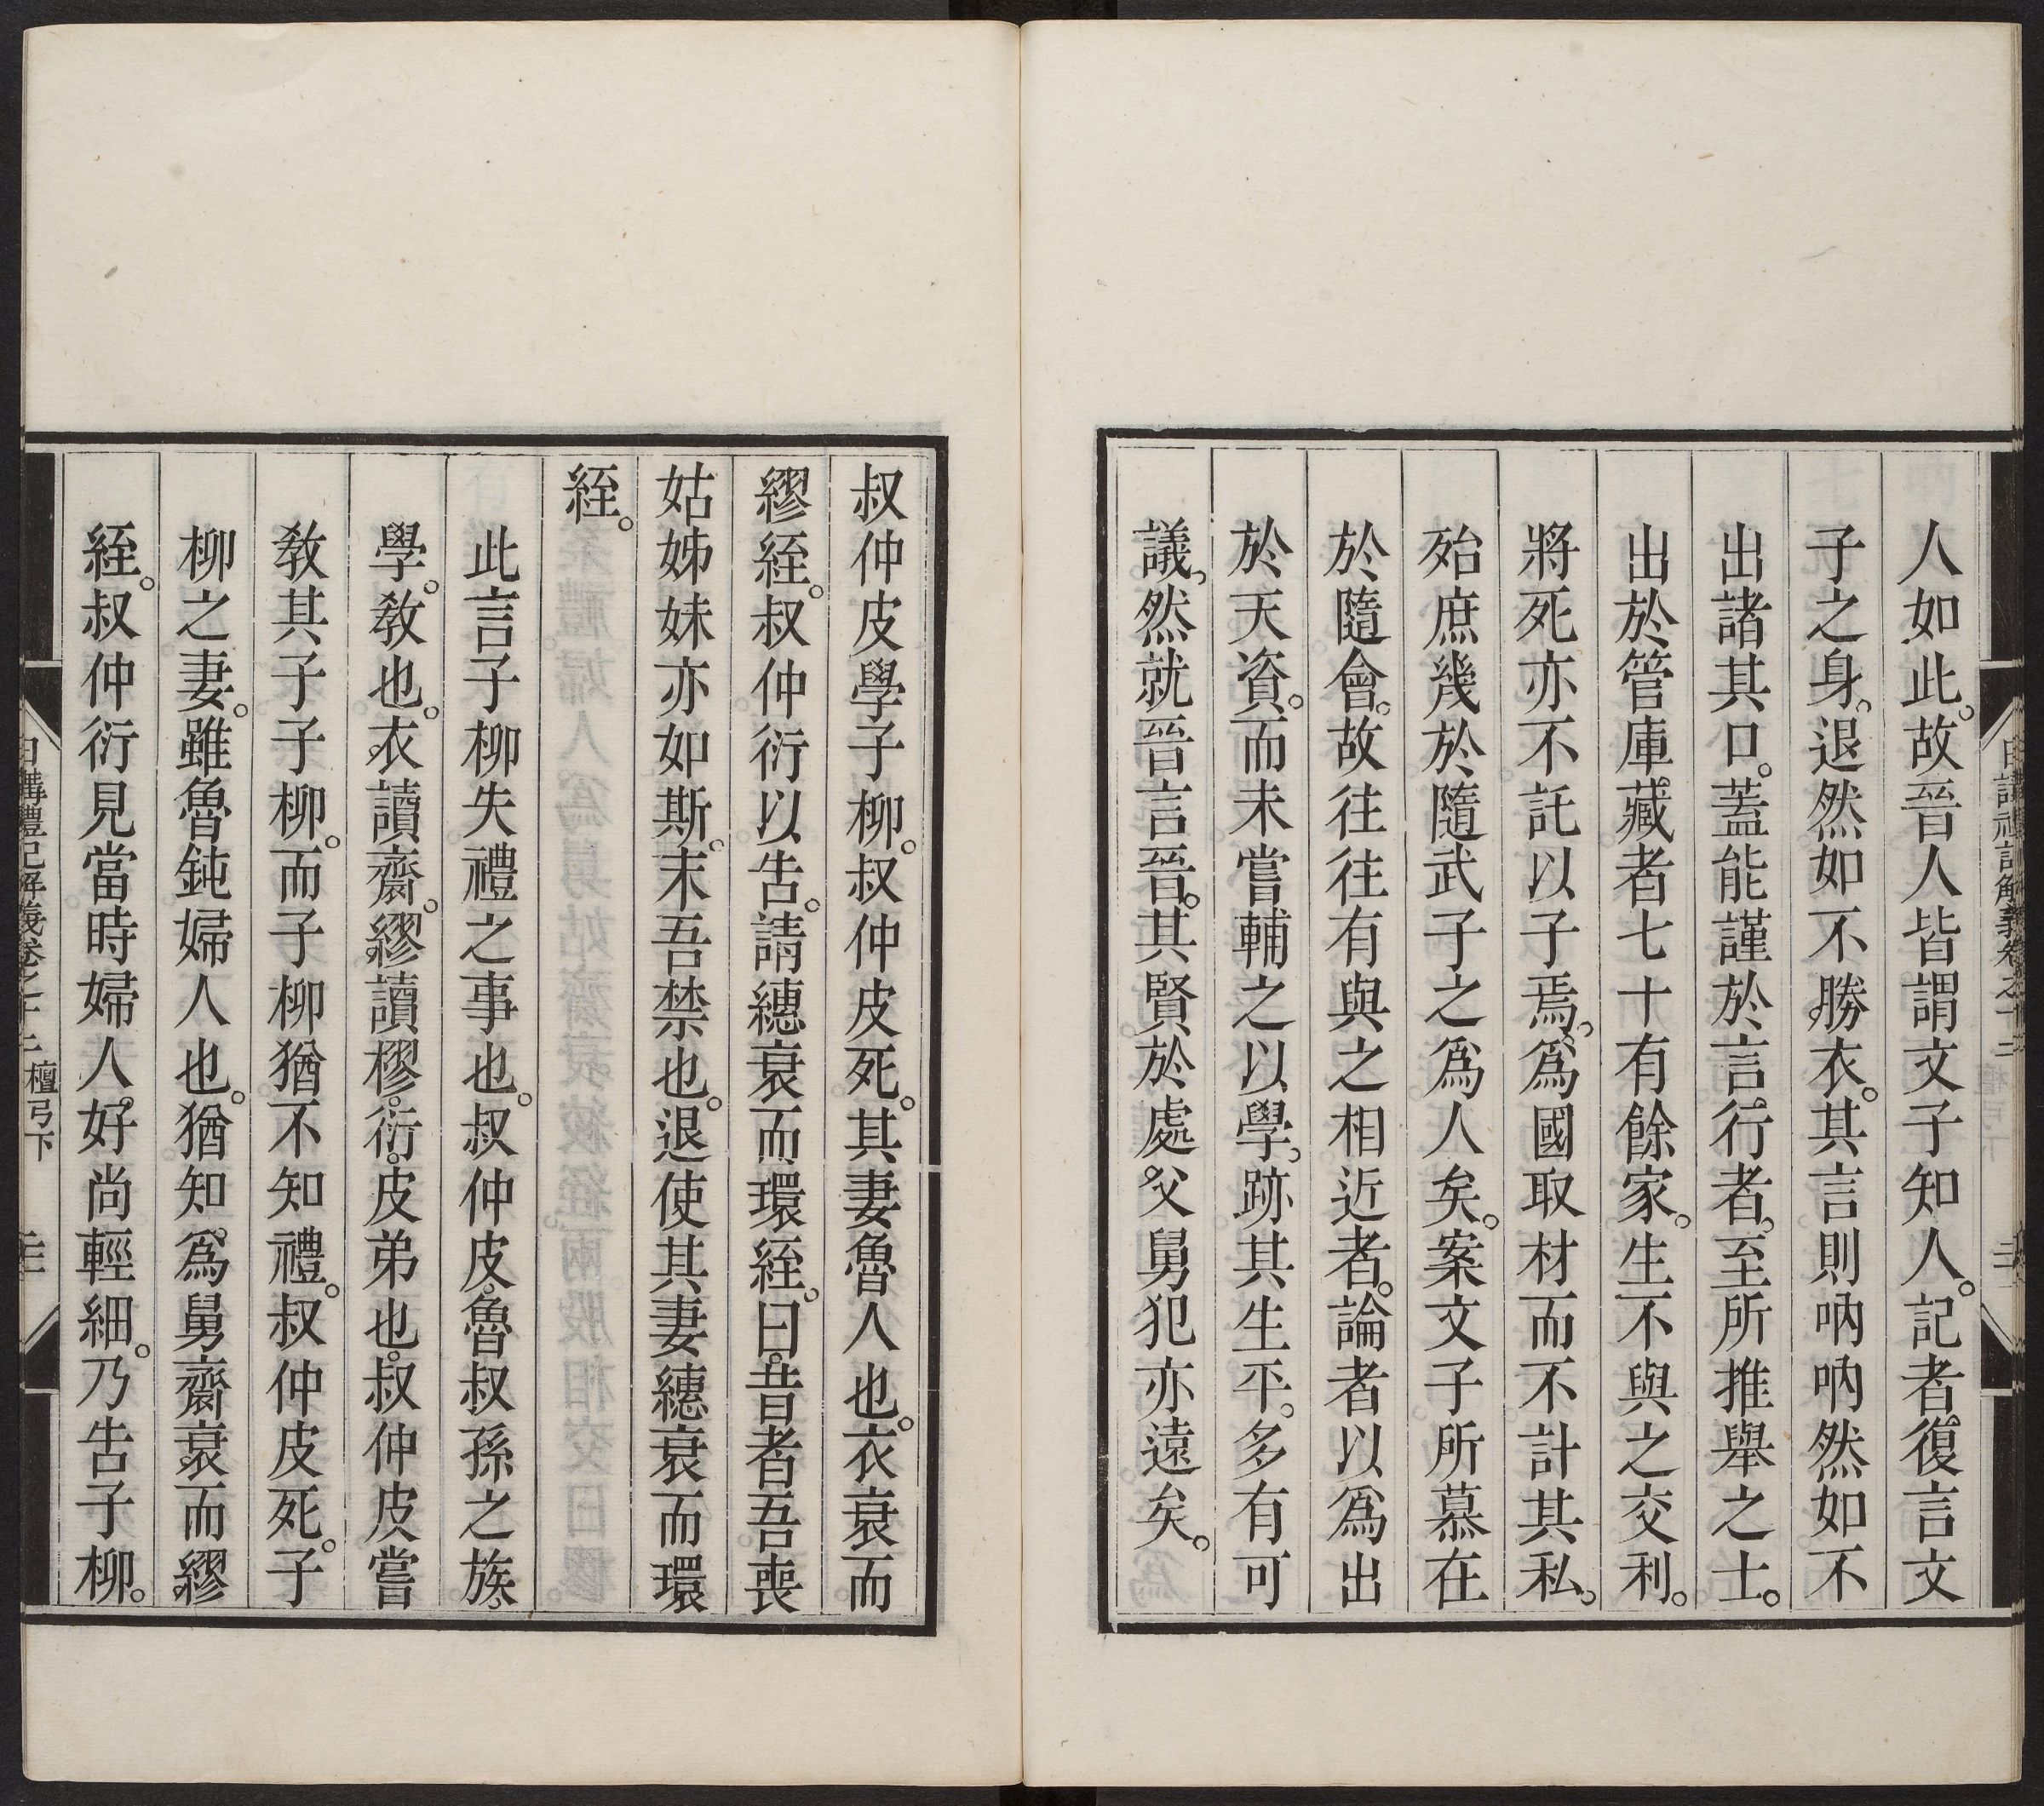 人如此。故晉人皆謂文子知人。記者復言文
子之身。退然如不勝衣。其言則吶吶然如不
出諸其口。蓋能謹於言行者。至所推舉之士。
出於管庫藏者七十有餘家。生不與之交利。
將死亦不託以子焉。爲國取材而不計其私。
殆庶幾於隨武子之爲人矣。案文子所慕在
於隨會。故往往有與之相近者。論者以爲出
於天資。而未嘗輔之以學。跡其生平。多有可
議。然就晉言晉。其賢於處父舅犯亦遠矣。
叔仲皮學子柳。叔仲皮死。其妻魯人也。衣衰而
繆絰。叔仲衍以告。請繐衰而環絰。曰。昔者吾喪
姑姊妹亦如斯。末吾禁也。退使其妻繐衰而環
絰。
此言子柳失禮之事也。叔仲皮。魯叔孫之族。
學。敎也。衣讀齋。繆讀樛。衍。皮弟也。叔仲皮嘗
敎其子子柳。而子柳猶不知禮。叔仲皮死。子
柳之妻。雖魯鈍婦人也。猶知爲舅齋衰而繆
絰。叔仲衍見當時婦人。好尚輕細。乃告子柳。
日講禮記解義卷之十二 檀弓下 三